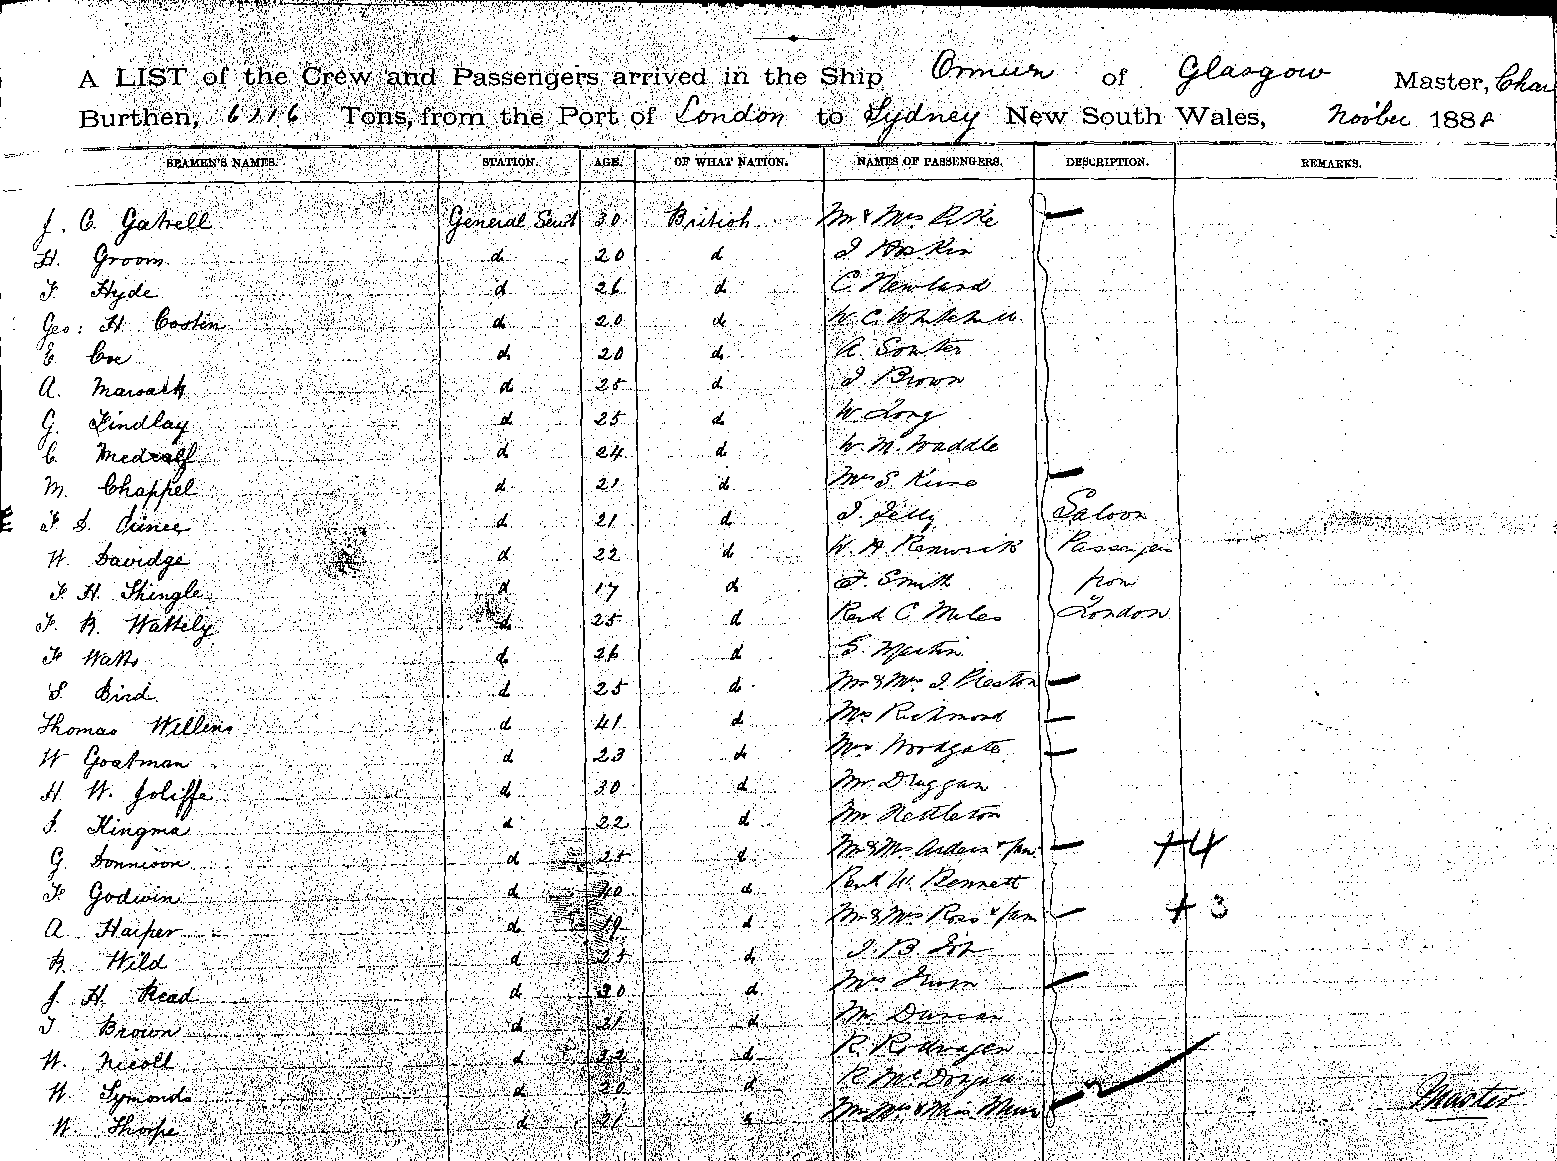 A LIST of the Crew and Passengers arrived in the Ship Ormuz of Glasgow Master, Char
Burthen, 6116 Tons, from the Port of London to Sydney New South Wales, Novber 188
SEAMEN'S NAMES. STATION. AGE. OF WHAT NATION. NAMES OF PASSENGERS. DESCRIPTION. REMARKS.
J. C. Gatrell General Servt 30 British Mr & Mrs
H. Groom d 20 d J Hoskin
F Hyde d 26 d C. Newland
Geo: H Costin d 20 d W. C.
E Coe d 20 d A. Souter
A. d 25 d J Brown
G. Findlay d 25 d W. Long
C. Medcalf d 24 d W. M. Waddle
M. Chappel d 21 d Mrs S.
F S. d 21 d J. Saloon
W. Davidge d 22 d W. A Renwick Passengers
F. H. Shingle d 17 d F. Smith from
F. R. Wattely d 25 d C Miles London
F Watts d 26 d Martin
S. Bird d 25 d Mr & Mrs J. Preston
Thomas Willens d 41 d Richmond
W Goatman d 23 d Mrs Woodgate
H W. Joliffe d 30 d Mr Duggan
J. Kingma d 22 d Mr Nettleton
G. Donnison d 25 d Mr & Mrs & fam +4
F Godwin d 40 d W. Bennett
A Harper d 19 d Mr & Mrs Ross & fam +3
R. Wild d 25 d J. B.
J. H. Read d 30 d Mrs
T Brown d 21 d Mr Duncan
W. Nicoll d 32 d R.
W. Symonds d 20 d R Mc Master
W. Thorpe d 21 d Mr Mrs & Miss